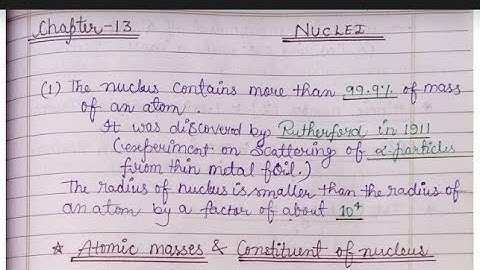 Chapter-13
NUCLEI
(1) The nucleus contains more than 99.9% of mass
of an atom.
It was discovered by Rutherford in 1911
(experiment on scattering of α particles
from thin metal foil.)
The radius of nucleus is smaller than the radius of
an atom by a factor of about 10⁴
☆ Atomic masses & Constituent of nucleus